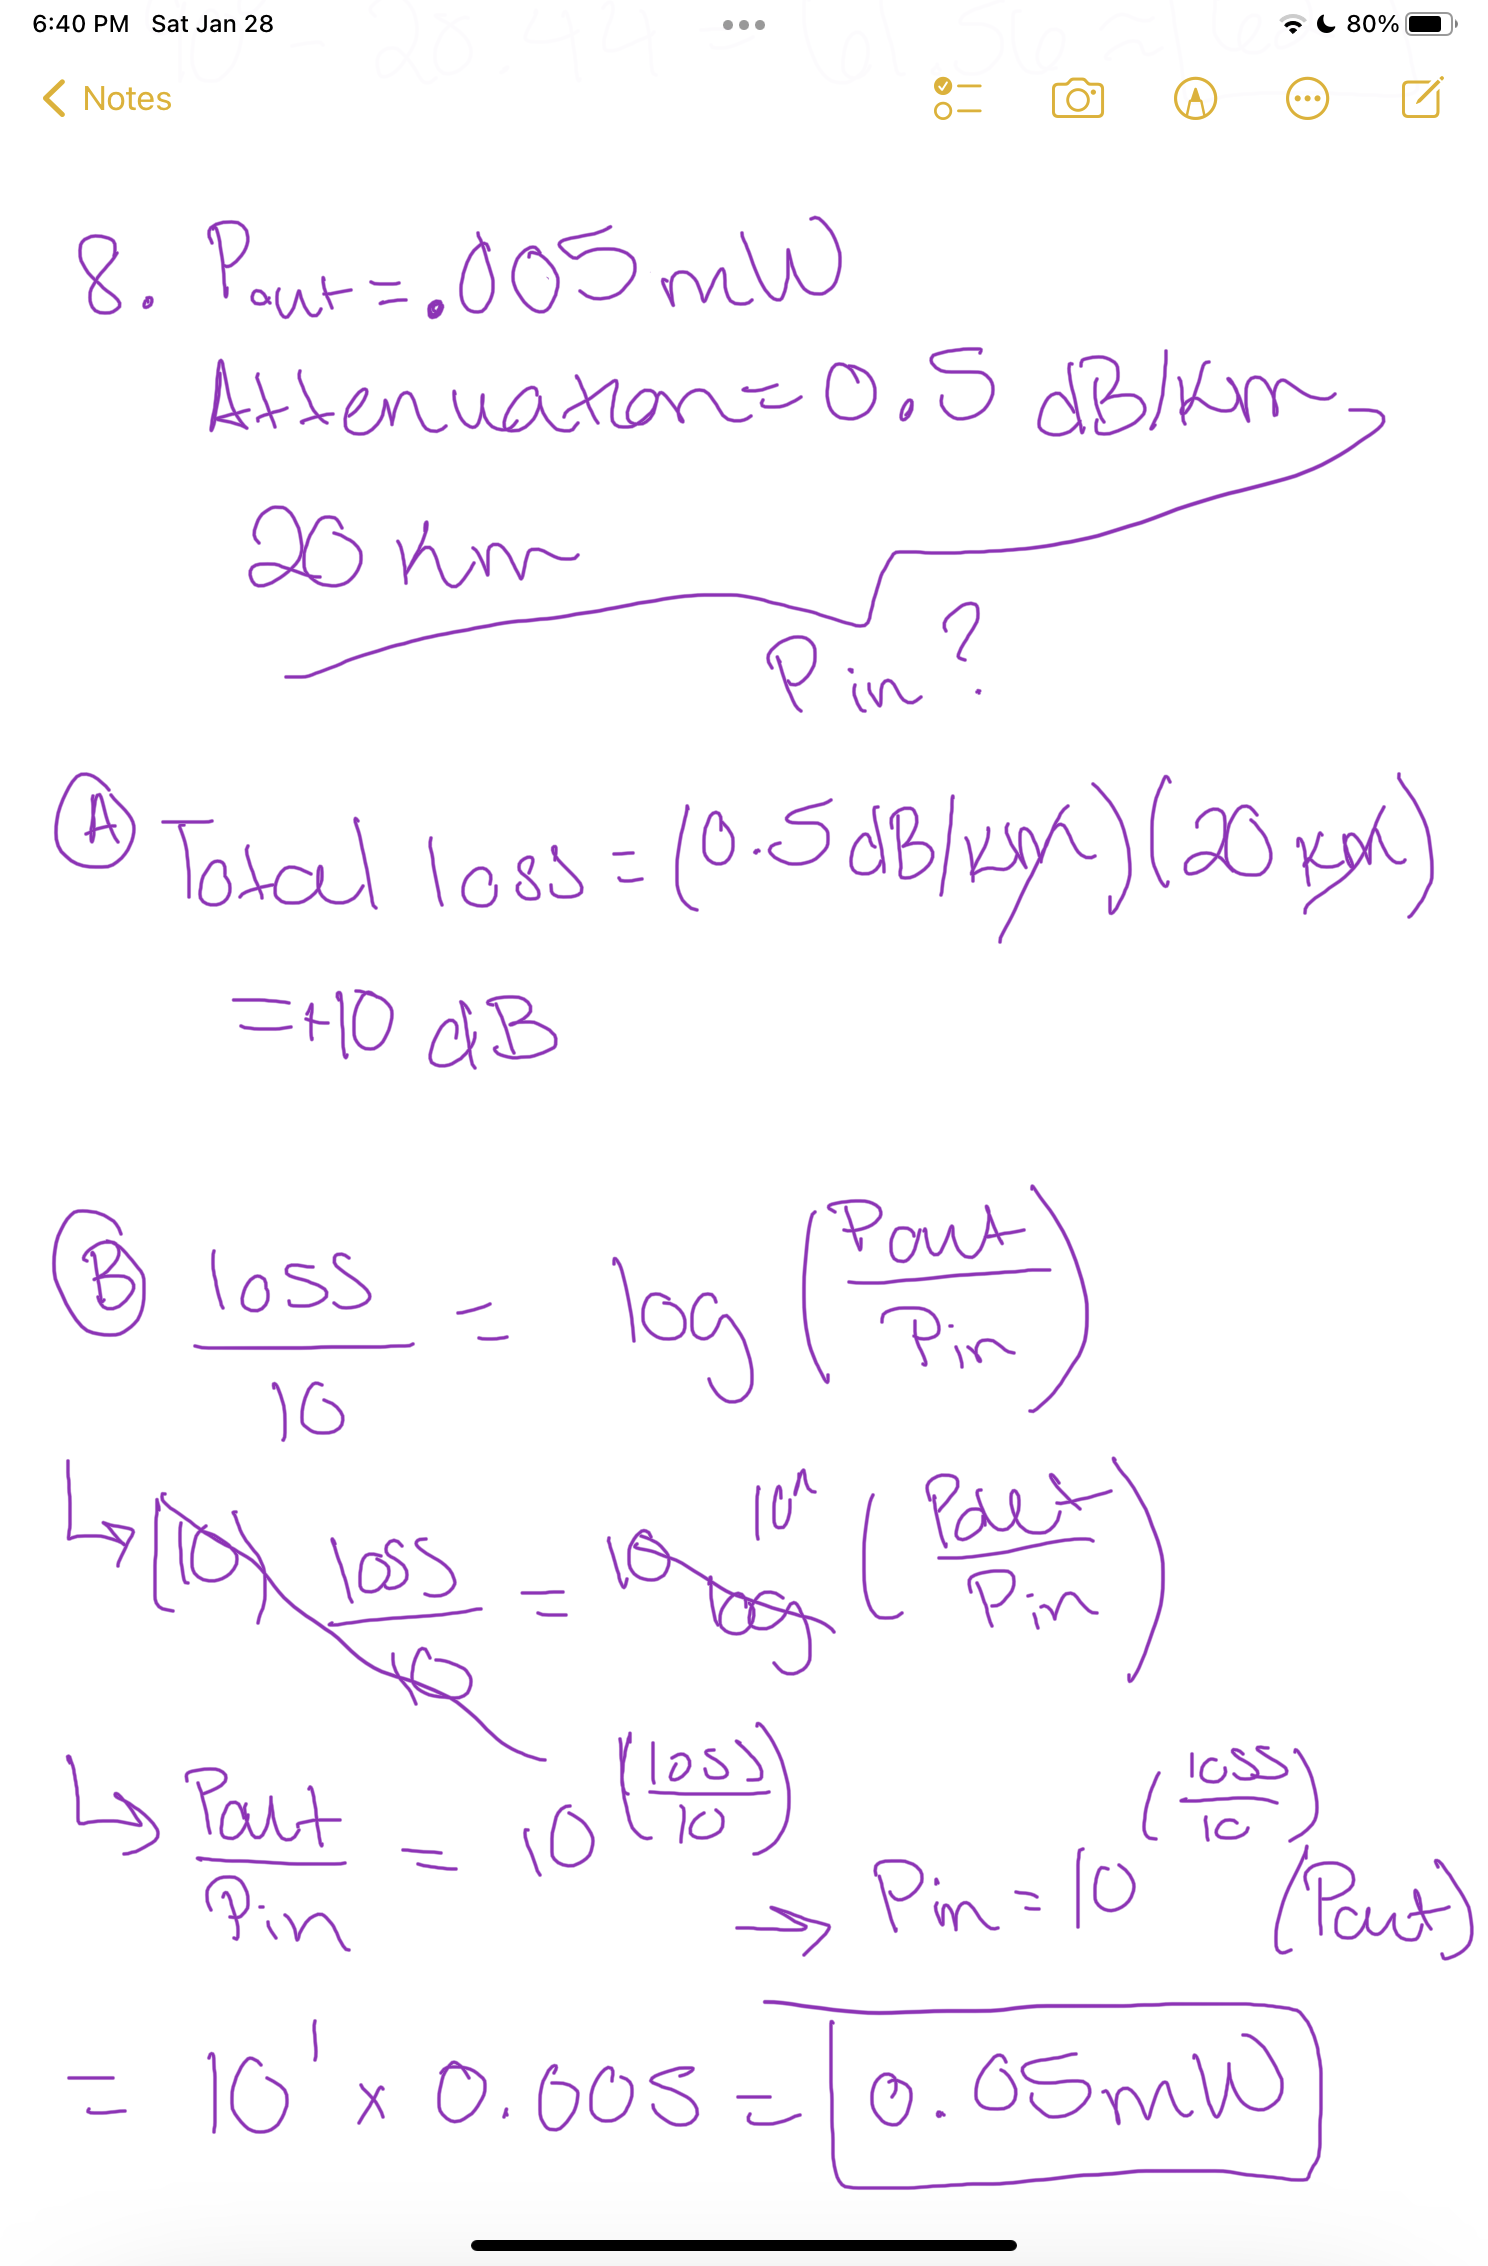 6:40 PM Sat Jan 28 80%
Notes
8. Pout = .005 mW
Attenuation = 0.5 dB/km
20 km
Pin ?
A Total loss = (0.5 dB/km)(20 km)
= +10 dB
B loss/10 = log (Pout/Pin)
↳ (10) loss/10 = 10 log 10^ (Pout/Pin)
↳ Pout/Pin = 10^(loss/10)
→ Pin = 10^(loss/10) (Pout)
= 10^1 x 0.005 = 0.05 mW